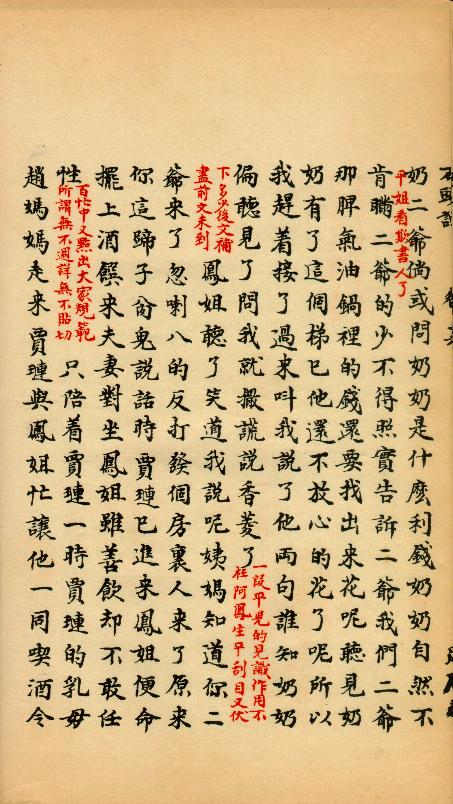 奶二爺倘或問奶奶是什麽利錢奶奶自然不
平姐看欺書人了
肯瞞二爺的少不得照實告訴二爺我們二爺
那脾氣油鍋裡的錢還要找出來花呢聽見奶
奶有了這個梯巳他還不放心的花了呢所以
我趕着接了過來叫我說了他兩句誰知奶奶
偏聽見了問我就撒謊說香菱了
一段平兒的見識作用不
枉阿鳳生平刮目又伏
下多少後文補
盡前文未到
鳳姐聽了笑道我說呢姨媽知道你二
爺來了忽喇八的反打發個房裏人來了原來
你這蹄子肏鬼說話時賈璉已進來鳳姐便命
擺上酒饌來夫妻對坐鳳姐雖善飲却不敢任
性
百忙中又點出大家規範
所謂無不週詳無不貼切
只陪着賈璉一時賈璉的乳母
趙媽媽走來賈璉與鳳姐忙讓他一同喫酒令